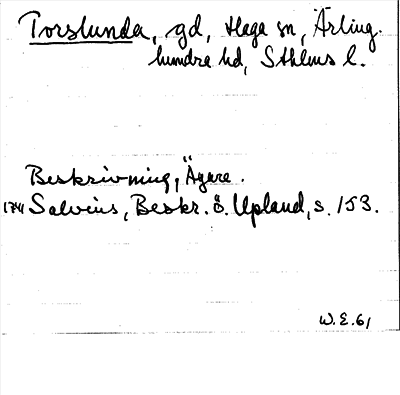 Torslunda, gd, Haga sn, Ärling-
hundra hd, Sthlms l.
Beskrivning, Ägare.
1741 Salvius, Beskr. ö. Upland, s. 153.
W.E.61